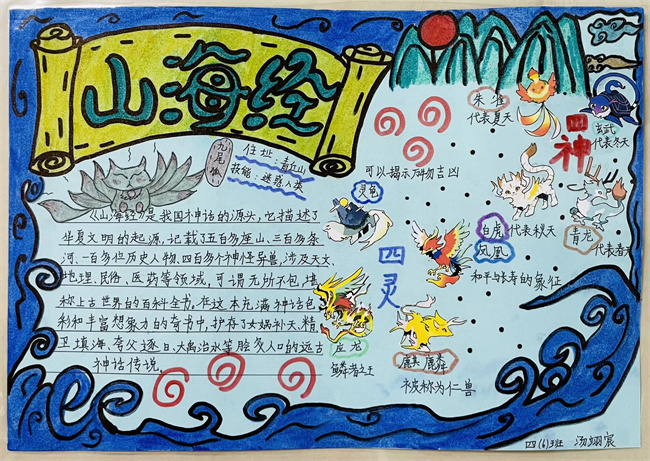 山海经
九尾狐
住址：青丘山
技能：迷惑人类
《山海经》是我国神话的源头，它描述了
华夏文明的起源，记载了五百多座山、三百多条
河、一百多位历史人物、四百多个神怪异兽，涉及天文、
地理、民俗、医药等领域，可谓无所不包，堪
称上古世界的百科全书。在这本充满神话色
彩和丰富想象力的奇书中，护存了女娲补天、精
卫填海、夸父逐日、大禹治水等脍炙人口的远古
神话传说。
四神
朱雀
代表夏天
玄武
代表冬天
白虎
代表秋天
青龙
代表春天
四灵
可以揭示 吉凶
灵龟
凤凰
和平与长寿的象征
应龙
鳞者之王
麒麟
被称为仁兽
四（6）班 汤翊宸